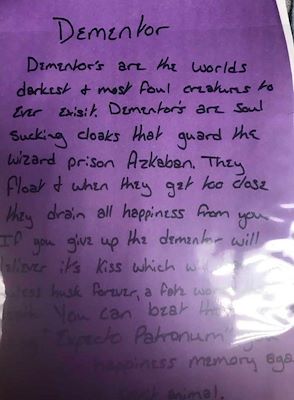 Dementor
Dementor's are the worlds
darkest & most foul creatures to
Ever exisit. Dementor's are soul
sucking cloaks that guard the
wizard prison Azkaban. They
float & when they get too close
they drain all happiness from you
If you give up the dementor will
it's kiss which
husk forever, a fate
You can beat
"Expecto Patronum"
happiness memory
animal.